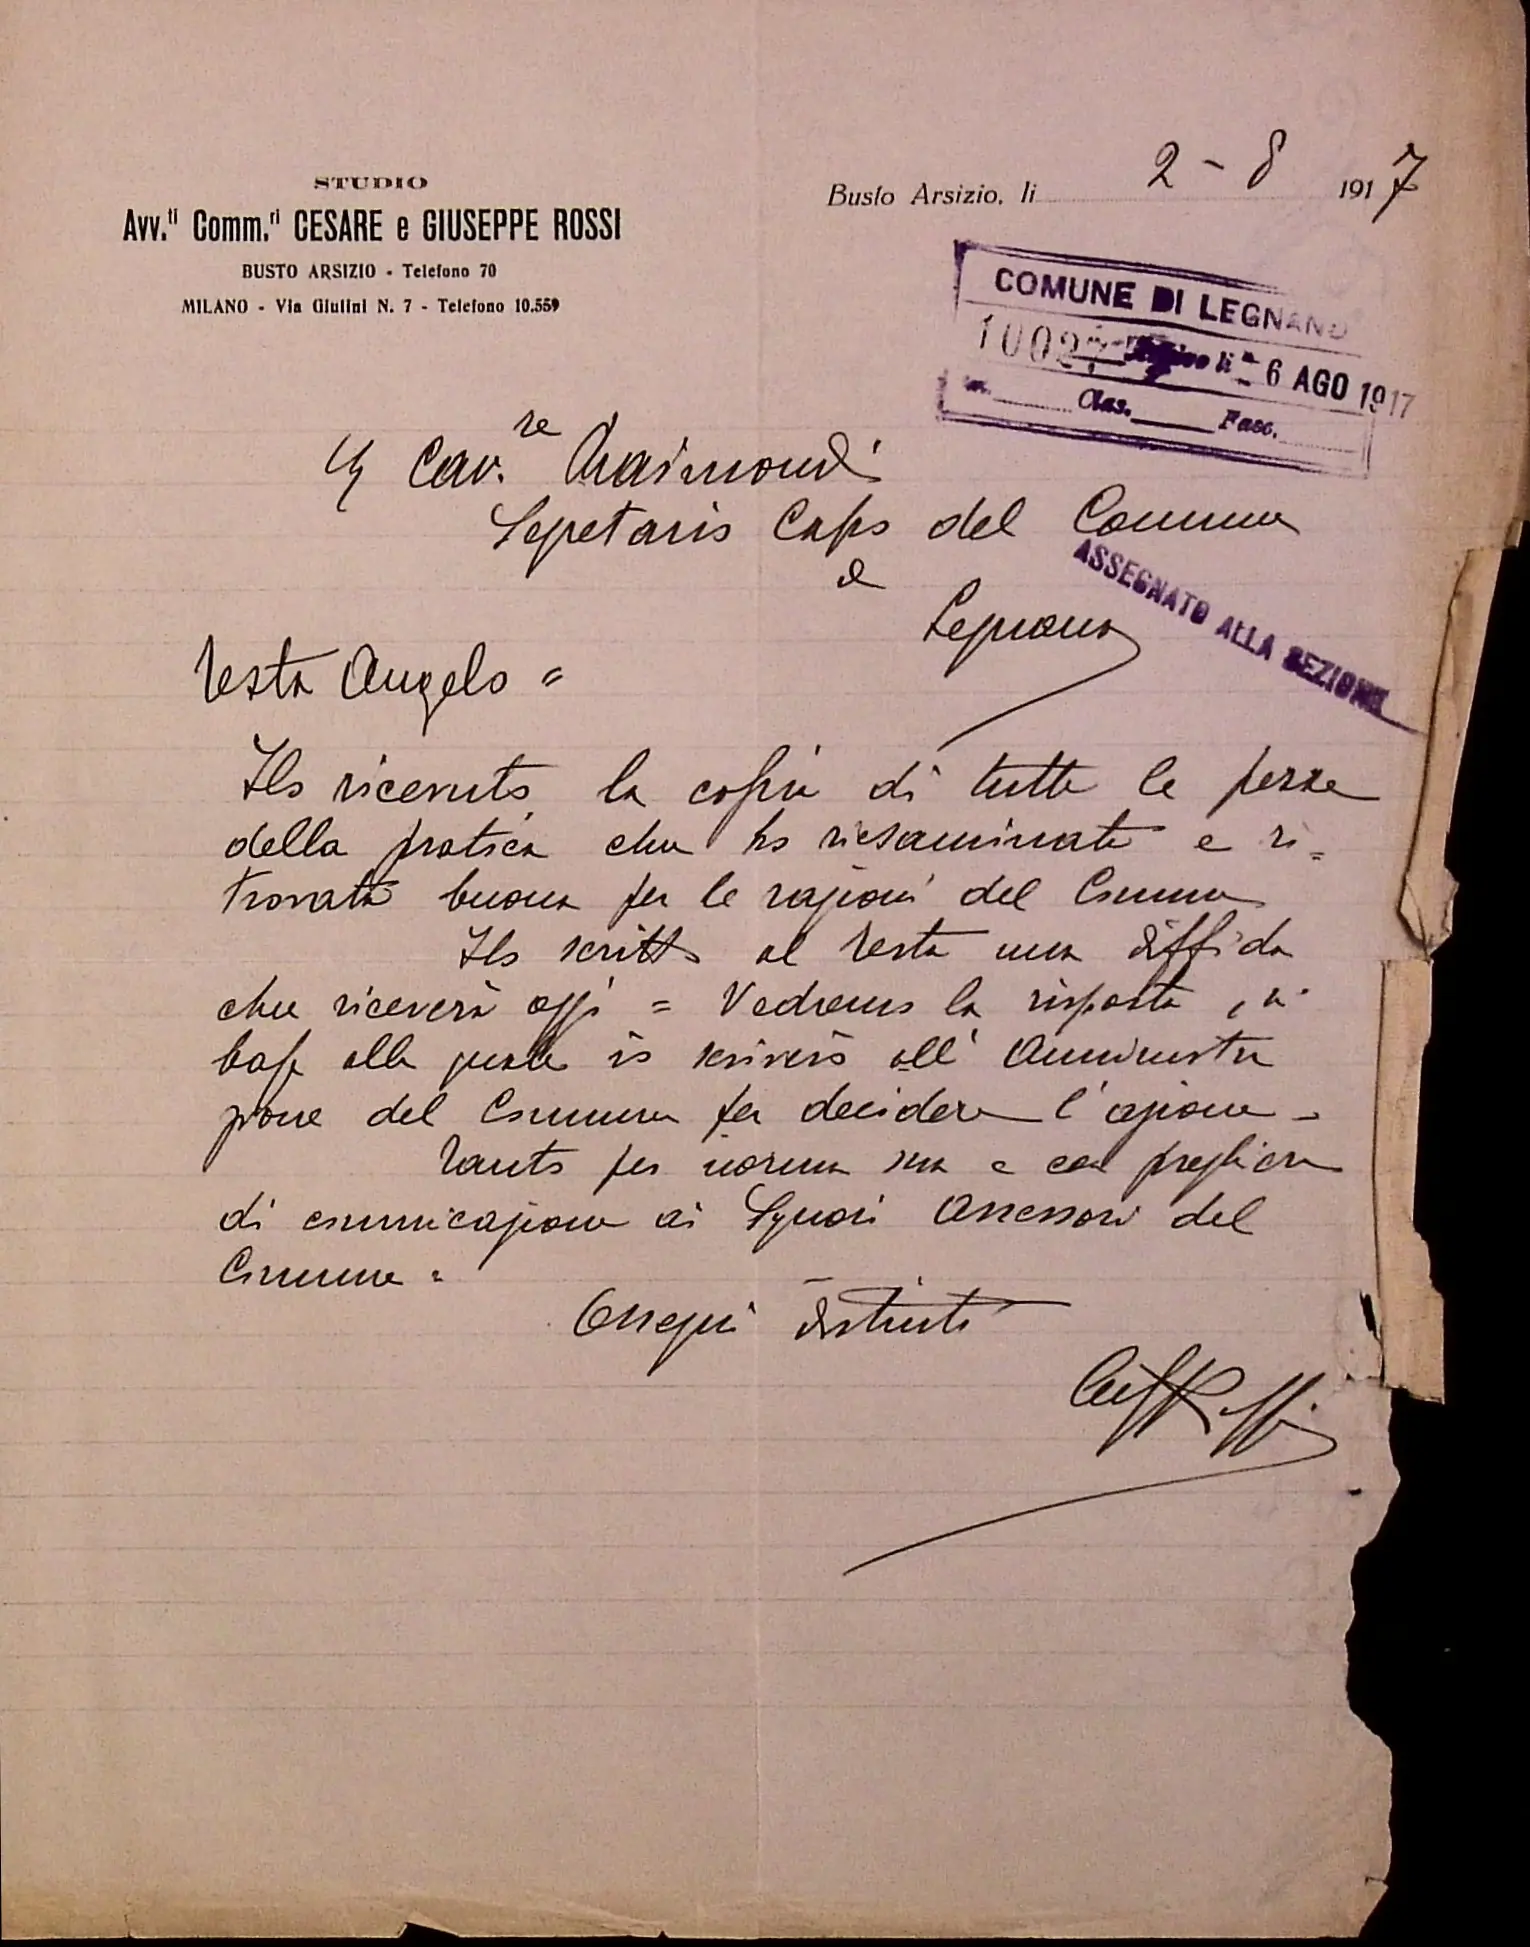 STUDIO
Avv.ti Comm.ri CESARE e GIUSEPPE ROSSI
BUSTO ARSIZIO - Telefono 70
MILANO - Via Giulini N. 7 - Telefono 10.559
Busto Arsizio, li 2-8 1917
COMUNE DI LEGNANO
li 6 AGO 1917
Clas. Fasc.
Cav.re Raimondi
Segretario Capo del Comune
di
Legnano
ASSEGNATO ALLA SEZIONE
Testa Angelo =
Ho ricevuto la copia di tutte le pezze
della pratica che ho riesaminata e ri=
trovata buona per le ragioni del Comune
Ho scritto al Testa una diffida
che riceverà oggi = Vedremo la risposta, in
base alla quale io scriverò all' Amministra
zione del Comune per decidere l'azione -
Tanto per norma sua e con preghiera
di comunicazione ai Signori Assessori del
Comune =
Ossequi distinti
Rossi